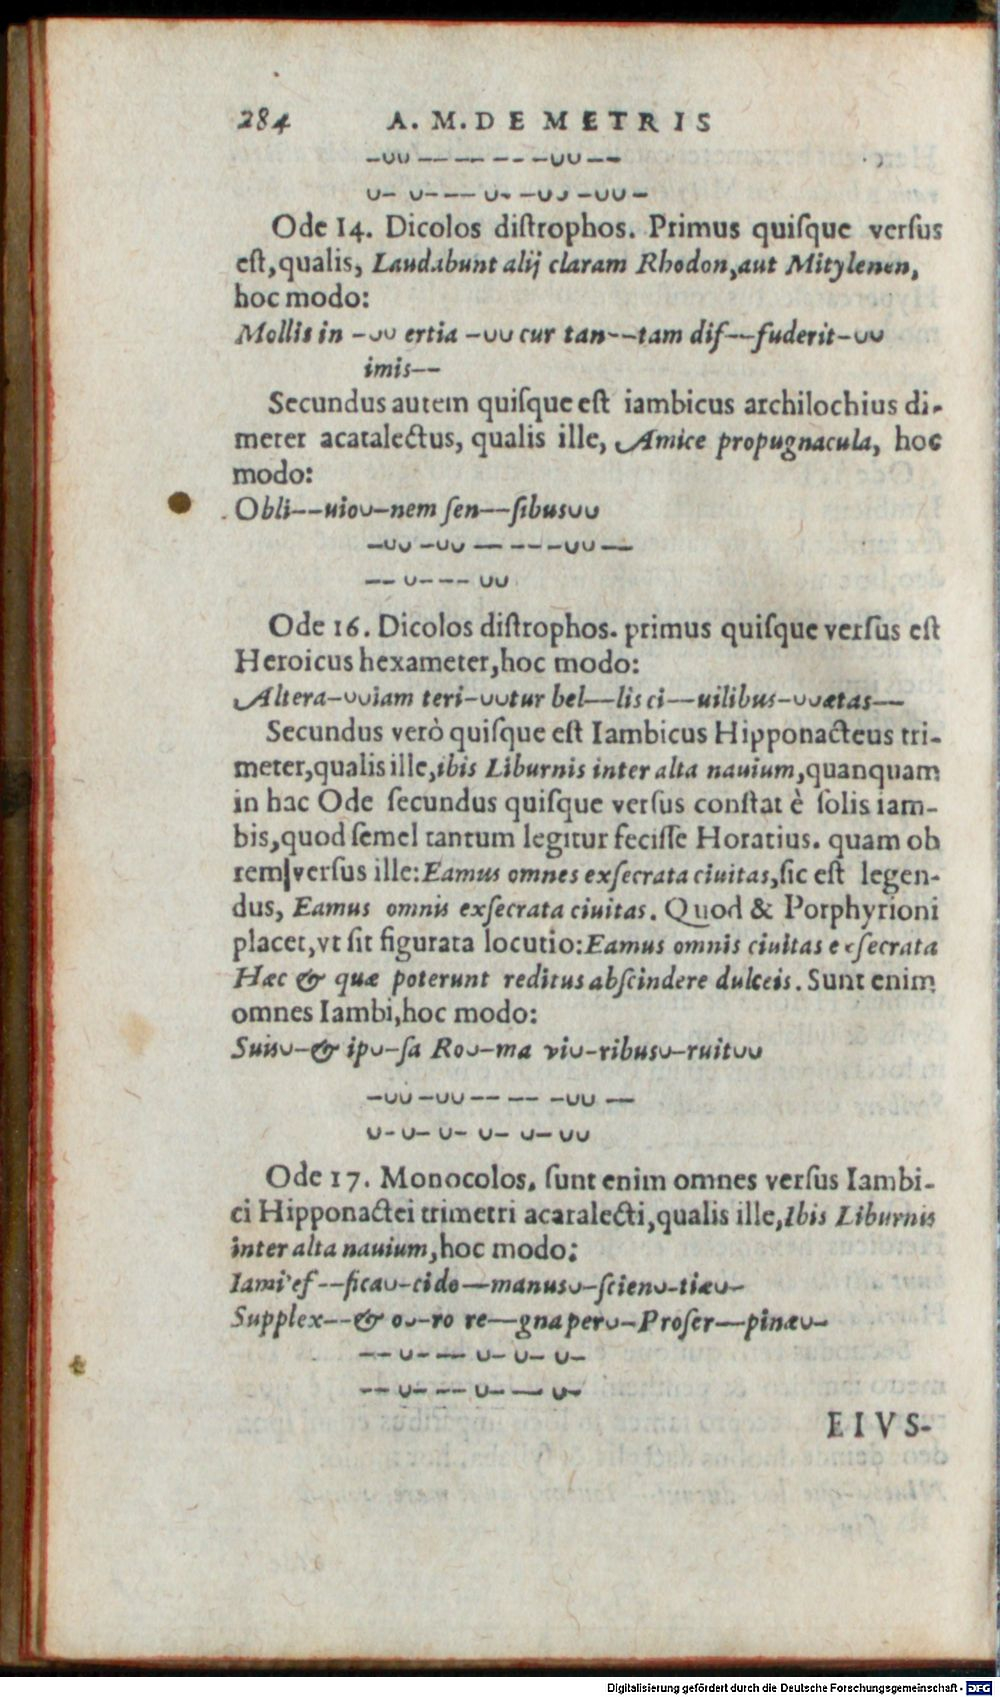 284 A. M. DE METRIS
–∪∪ –– –– –– –∪∪ ––
∪– ∪– –– ∪– –∪∪ –∪∪ –
Ode 14. Dicolos distrophos. Primus quiſque verſus
eſt, qualis, Laudabunt alij claram Rhodon, aut Mitylenen,
hoc modo:
Mollis in –∪∪ ertia –∪∪ cur tan––tam diſ––fuderit–∪∪
imis––
Secundus autem quiſque eſt iambicus archilochius di-
meter acatalectus, qualis ille, Amice propugnacula, hoc
modo:
Obli––uio∪–nem ſen––ſibus∪∪
–∪∪ –∪∪ –– –– –∪∪ ––
–– ∪– –– ∪∪
Ode 16. Dicolos diſtrophos. primus quiſque verſus eſt
Heroicus hexameter, hoc modo:
Altera–∪∪iam teri–∪∪tur bel––lis ci––uilibus–∪∪ætas––
Secundus verò quiſque eſt Iambicus Hipponacteus tri-
meter, qualis ille, ibis Liburnis inter alta nauium, quanquam
in hac Ode ſecundus quiſque verſus conſtat è ſolis iam-
bis, quod ſemel tantum legitur feciſſe Horatius. quam ob
rem verſus ille: Eamus omnes exſecrata ciuitas, ſic eſt legen-
dus, Eamus omnis exſecrata ciuitas. Quod & Porphyrioni
placet, vt ſit figurata locutio: Eamus omnis ciuitas exſecrata
Hæc & quæ poterunt reditus abſcindere dulceis. Sunt enim
omnes Iambi, hoc modo:
Suis∪–& ip∪–ſa Ro∪–ma vi∪–ribus∪–ruit∪∪
–∪∪ –∪∪ –– –– –∪∪ ––
∪– ∪– ∪– ∪– ∪– ∪∪
Ode 17. Monocolos. ſunt enim omnes verſus Iambi-
ci Hipponactei trimetri acatalecti, qualis ille, Ibis Liburnis
inter alta nauium, hoc modo:
Iam i'ef––fica∪–cido––manus∪–ſcien∪–tiæ∪–
Supplex––& o∪–ro re––gna per∪–Proſer––pinæ∪–
–– ∪– –– ∪– ∪– ∪–
–– ∪– –– ∪– –– ∪–
EIVS-
Digitalisierung gefördert durch die Deutsche Forschungsgemeinschaft - DFG